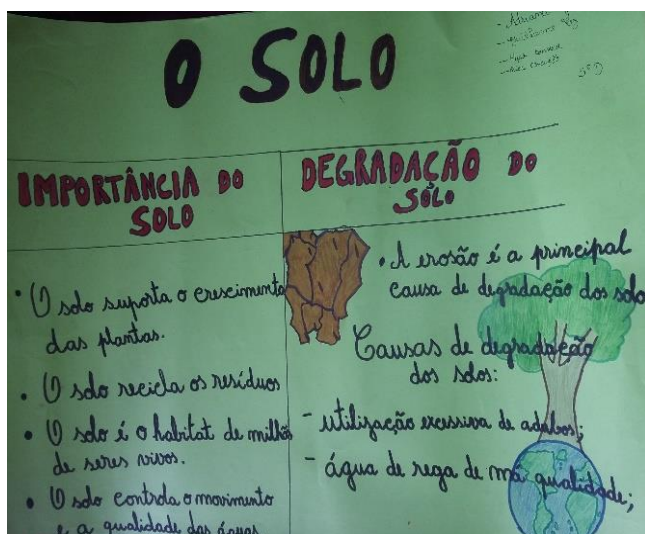 O SOLO
- Adriana
5º D
IMPORTÂNCIA DO
SOLO
• O solo suporta o crescimento
das plantas.
• O solo recicla os resíduos
• O solo é o habitat de milhõ
de seres vivos.
• O solo controla o movimento
e a qualidade das águas
DEGRADAÇÃO DO
SOLO
• A erosão é a principal
causa de degradação dos solo
Causas de degradação
dos solos:
- utilização excessiva de adubos;
- água de rega de má qualidade;